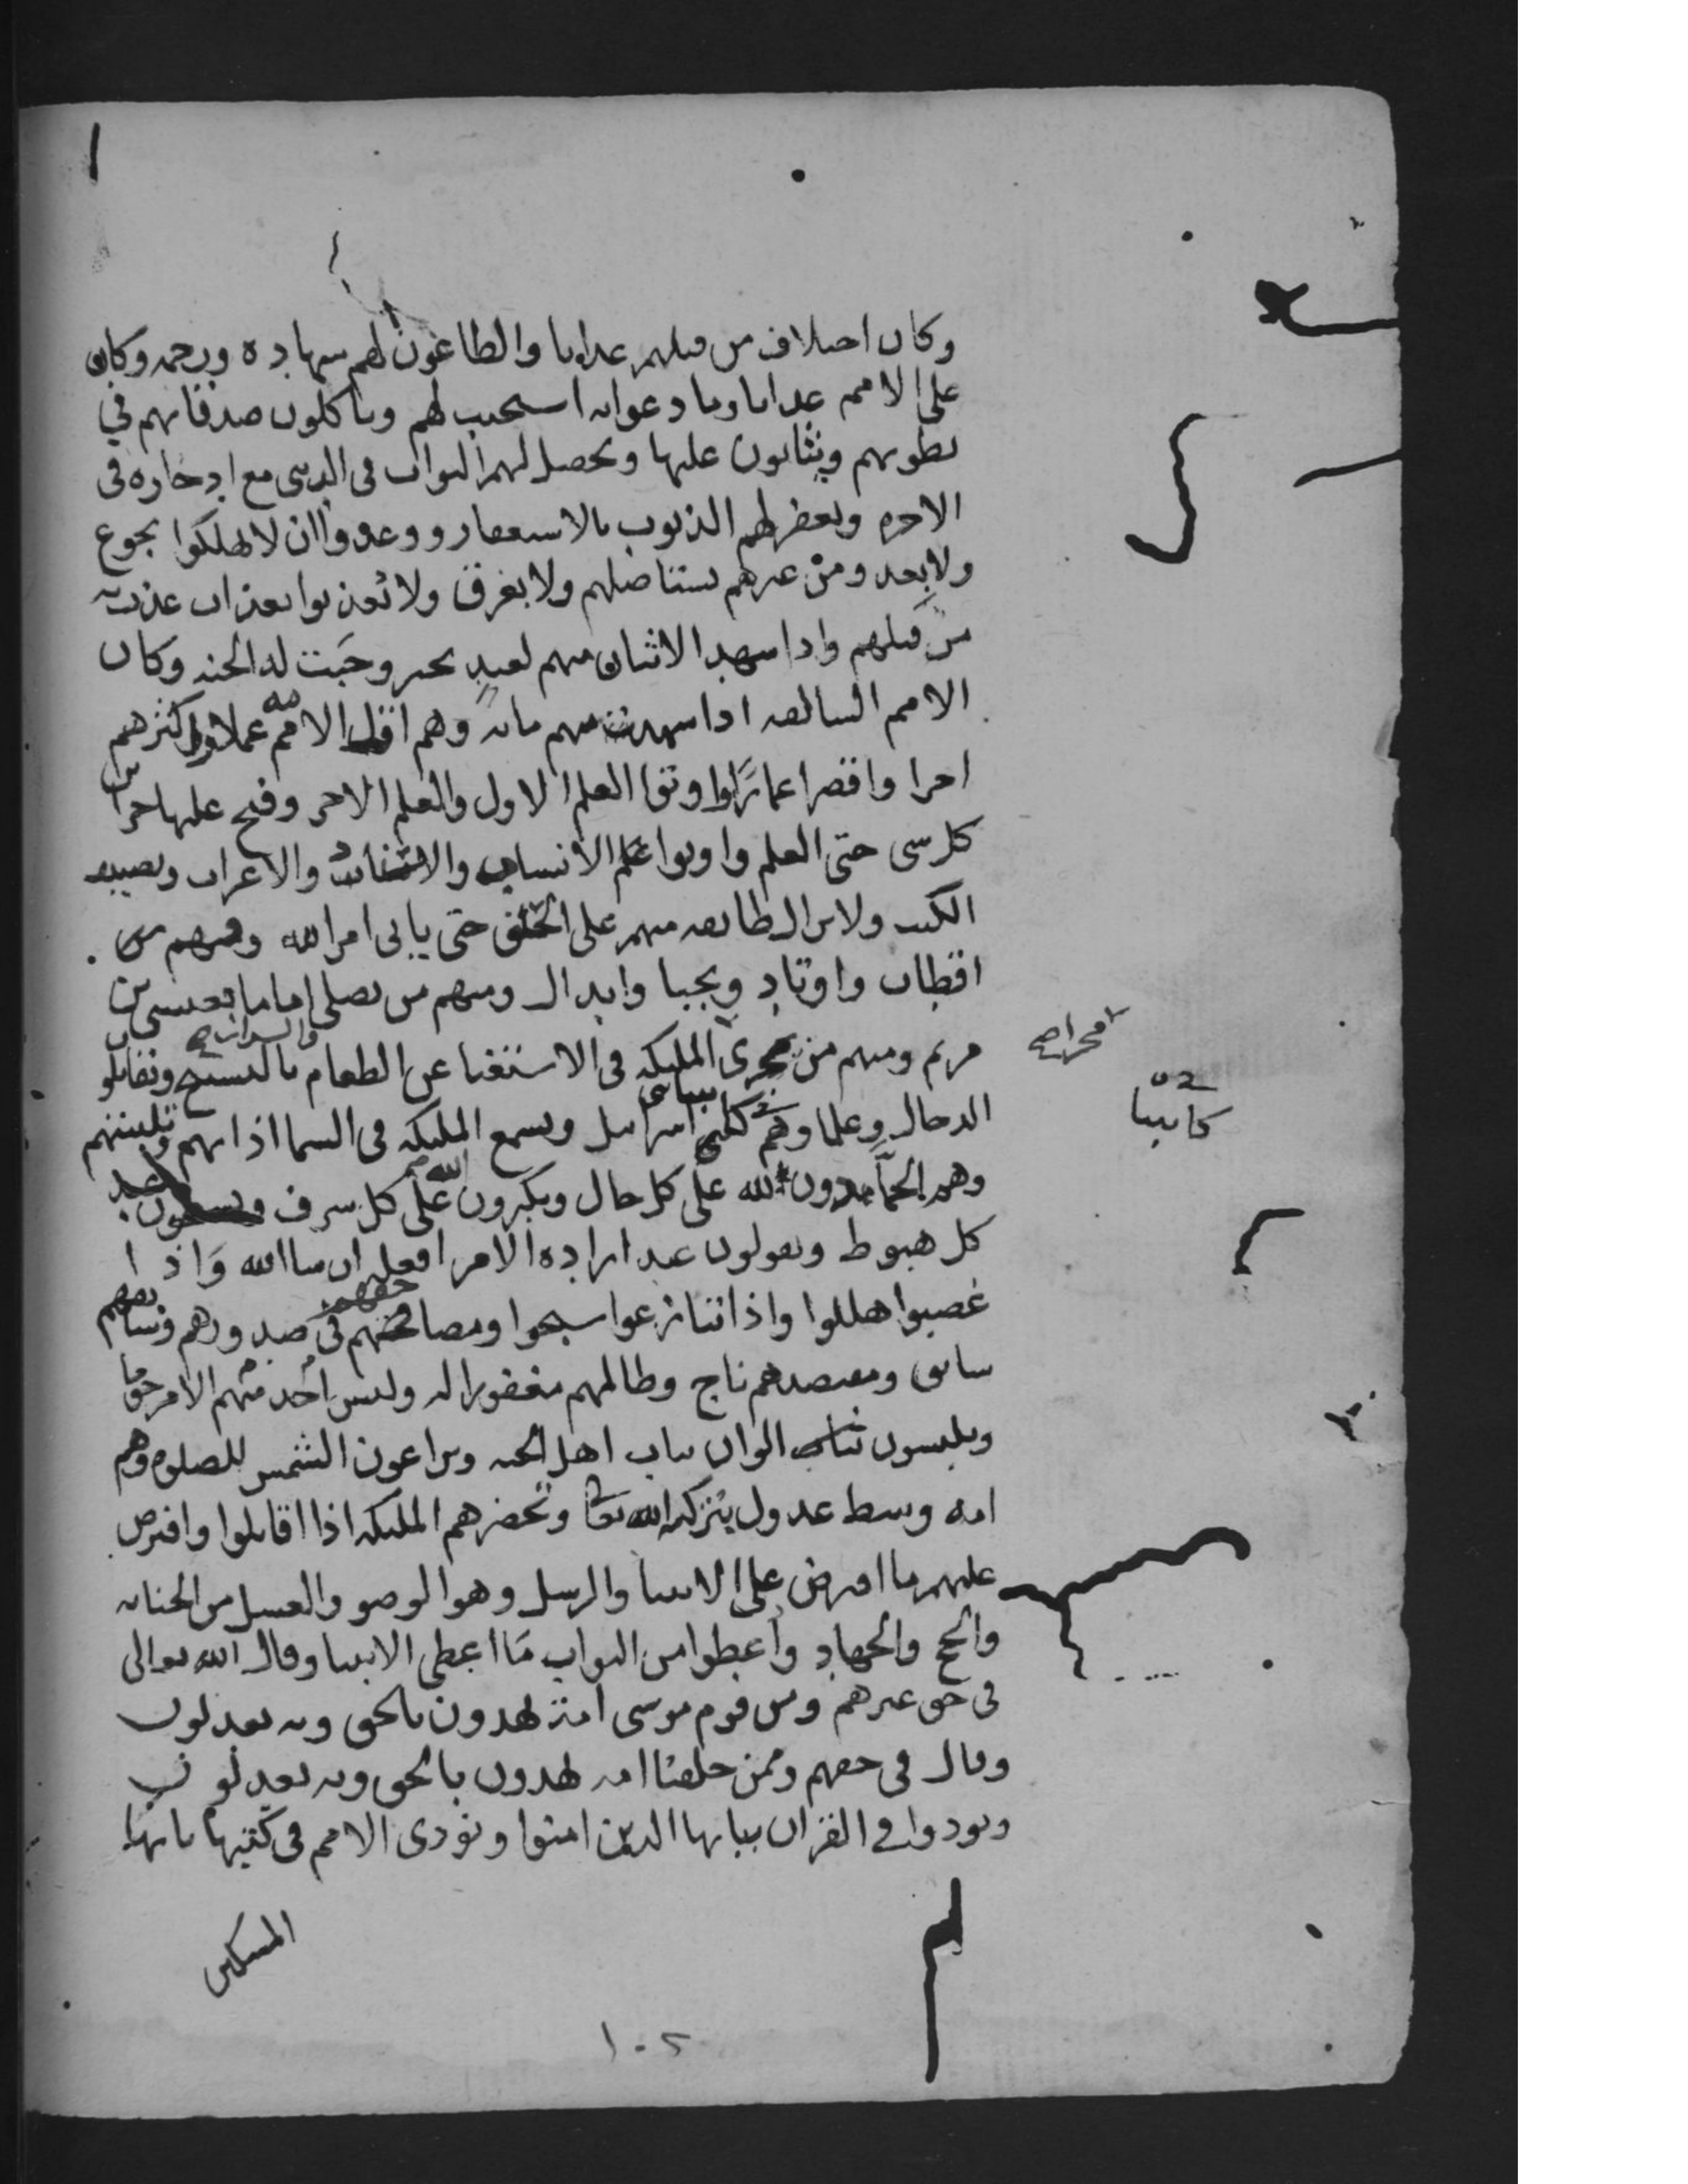 وكان اختلاف من قبلهم عذابا والطاعون لهم شهادة ورحمة وكان
على الامم عذابا وما دعوا به استجيب لهم وياكلون صدقاتهم في
بطونهم ويثابون عليها ويحصل لهم الثواب في الدنيى مع ادخاره في
الاخرة ويغفر لهم الذنوب بالاستغفار ووعدوا ان لا يهلكوا بجوع
ولا بعدو من غيرهم يستاصلهم ولا بغرق ولا يعذبوا بعذاب عذب به
من قبلهم واذا شهد الاثنان منهم لعبد بخير وجبت له الجنة وكان
الامم السالفة اذا شهدت منهم ماية وهم اقل الامم عملا واكثرهم
اجرا واقصر اعمارا واوتوا العلم الاول والعلم الاخر وفتح عليها خزاين
كل شي حتى العلم واوتوا علم الانساب والاسناد والاعراب وتصنيف
الكتب ولا يزال طايفة منهم على الحق حتى ياتي امر الله وفيهم من
اقطاب واوتاد ونجبا وابدال ومنهم من يصلي اماما بعيسى بن
مريم ومنهم من يجري مجرى المليكة في الاستغنا عن الطعام بالتسبيح ويقاتلون
الدجال وعلماوهم كانبيا بني اسرائيل ويسمع المليكة في السما اذانهم وتلبيتهم
وهم الحمادون لله على كل حال ويكبرون الله على كل شرف ويسبحون عند
كل هبوط ويقولون عند ارادة الامر افعله ان شا الله واذا
غضبوا هللوا واذا تنازعوا سبحوا ومصاحفهم في صدورهم وسابقهم
سابق ومقتصدهم ناج وظالمهم مغفور له وليس احد منهم الا مرحوما
ويلبسون الوان ثياب اهل الجنة ويراعون الشمس للصلوة وهم
امة وسط عدول بتزكية الله تعا وتحضرهم المليكة اذا قاتلوا وافترض
عليهم ما افترض على الانبيا والرسل وهو الوضو والغسل من الجنابة
والحج والجهاد واعطوا من الثواب ما اعطى الانبيا وقال الله تعالى
في حق غيرهم ومن قوم موسى امة يهدون بالحق وبه يعدلون
وقال في حقهم وممن خلقنا امة يهدون بالحق وبه يعدلون
ونودوا في القران بيايها الذين امنوا ونودي الامم في كتبها بايها
المسكين
١٠٢